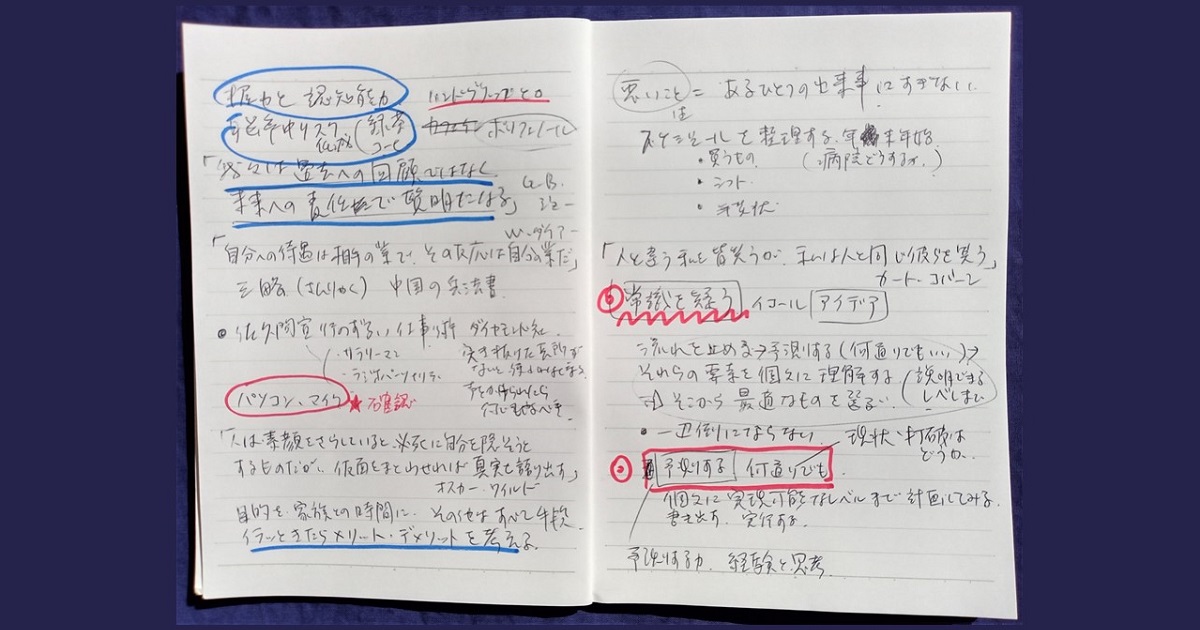 握力と認知能力 ハンドグリップとの
脳卒中リスク 低減 (緑茶 コーヒー) カフェイン ポリフェノール
過去への回顧ではなく
未来への責任で賢明になる」 G.B. ショー
W.ダイアー
「自分への待遇は相手の業で、その反応は自分の業だ」
三略(さんりゃく) 中国の兵法書
・佐久間宣行のずるい仕事術 ダイヤモンド社
・サラリーマン
突き抜けた長所が
ないと
パソコン、マイク ★再確認
「人は素顔をさらしていると、必死に自分を隠そうと
するものだが、仮面をまとわせれば真実を語り出す」
オスカー・ワイルド
目的を家族との時間に、その他はすべて手段
イラッときたらメリット・デメリットを考える
悪いこと = あるひとつの出来事にすぎない
は
スケジュールを整理する、年末年始
・買うもの (病院どうするか)
・シフト
・年賀状
「人と違う私を皆笑うが、私は人と同じ彼らを笑う」
カート・コバーン
常識を疑う イコール アイデア
流れを止める→予測する(何通りでもいい)→
それらの要素を個々に理解する (説明できる
レベルまで)
⇒ そこから最適なものを選ぶ
・一辺倒にならない 現状、打破は
どうか
予測する 何通りでも
個々に実現可能なレベルまで計画してみる
書き出す、実行する
予測する力、経験と思考